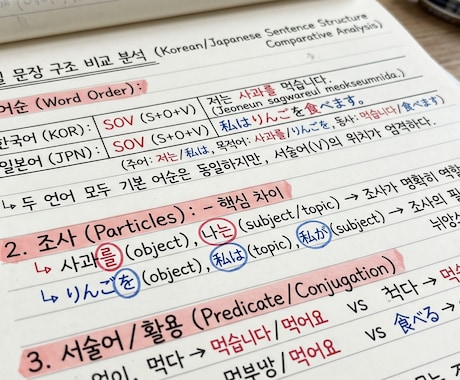 일 문장 구조 비교 분석 (Korean/Japanese Sentence Structure
Comparative Analysis)
어순 (Word Order):
한국어 (KOR): SOV (S+O+V) 저는 사과를 먹습니다.
(Jeoneun sagwareul meokseumnida.)
일본어 (JPN): SOV (S+O+V) 私はりんごを食べます。
(주어: 저는/私は, 목적어: 사과를/りんごを, 동사: 먹습니다/食べます)
↳ 두 언어 모두 기본 어순은 동일하지만, 서술어(V)의 위치가 엄격하다.
2. 조사 (Particles): - 핵심 차이
↳ 사과를 (object), 나는 (subject/topic) → 조사가 명확히 역할
↳ りんごを (object), 私は (topic), 私が (subject) → 조사의
뉘앙스
3. 서술어/활용 (Predicate/Conjugation)
없이, 먹다 → 먹습니다/먹어요 VS 척다 →
먹부방/먹어요 VS 食べる →